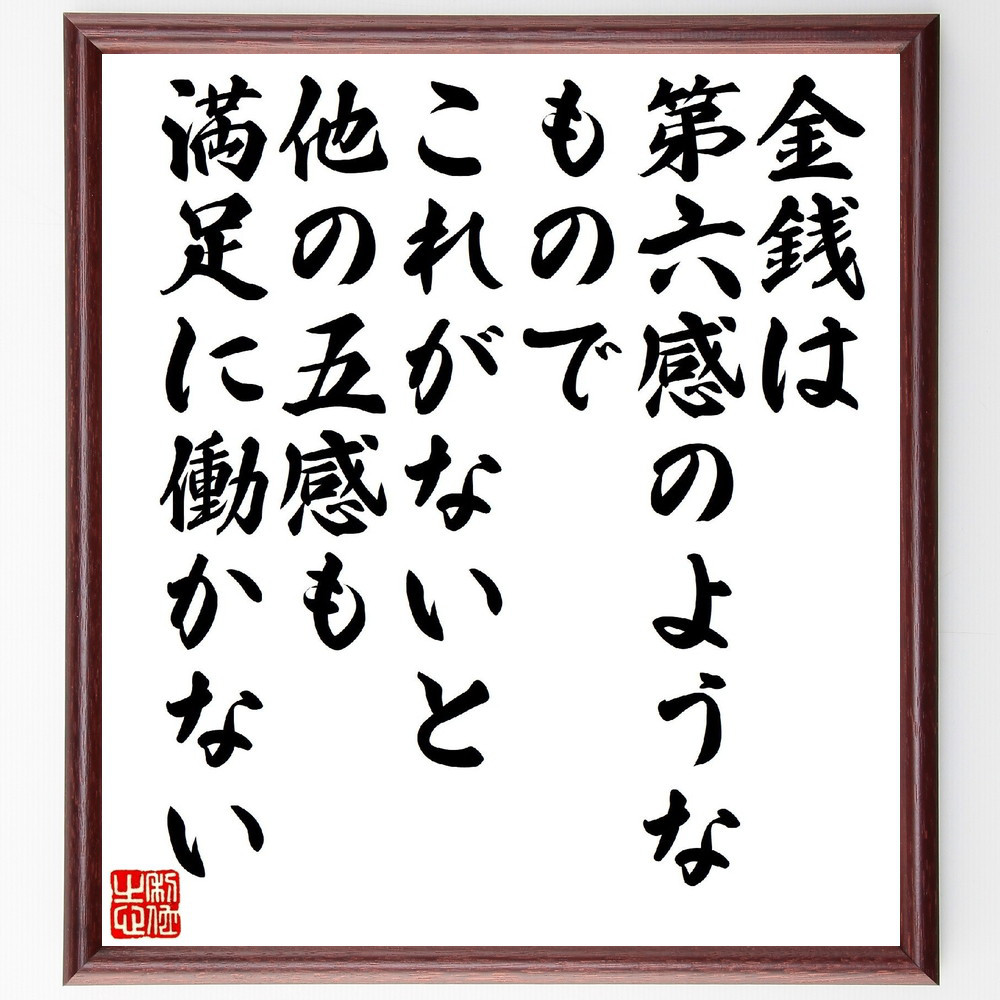 金銭は
第六感のような
もので
これがないと
他の五感も
満足に働かない